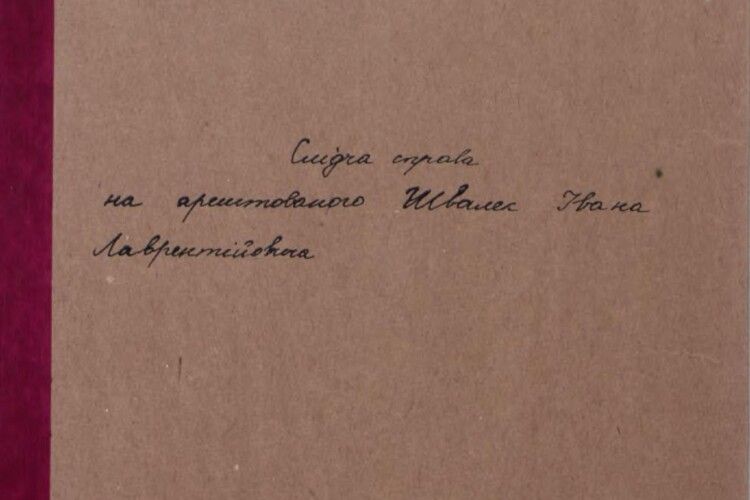 Слідча справа
на арештованого Швалек Івана
Лаврентійовича